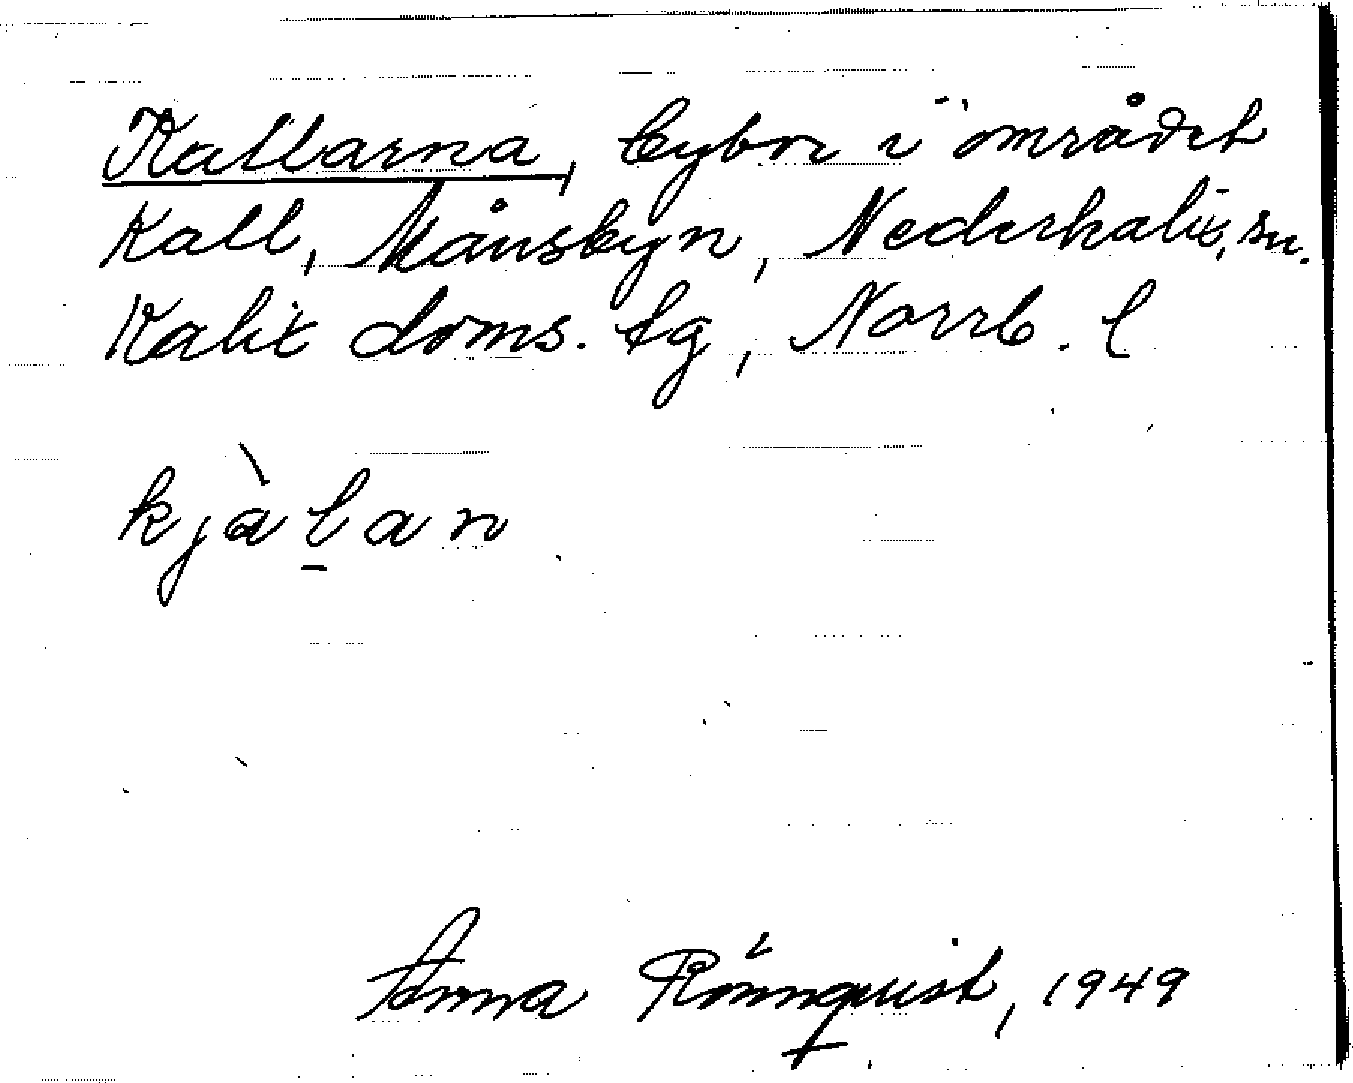 Kallarna, bybor i området
Kall, Månsbyn, Nederkalix, sn.
Kalix doms. tg, Norrb. l
kjàlan
Anna Rönnquist, 1949